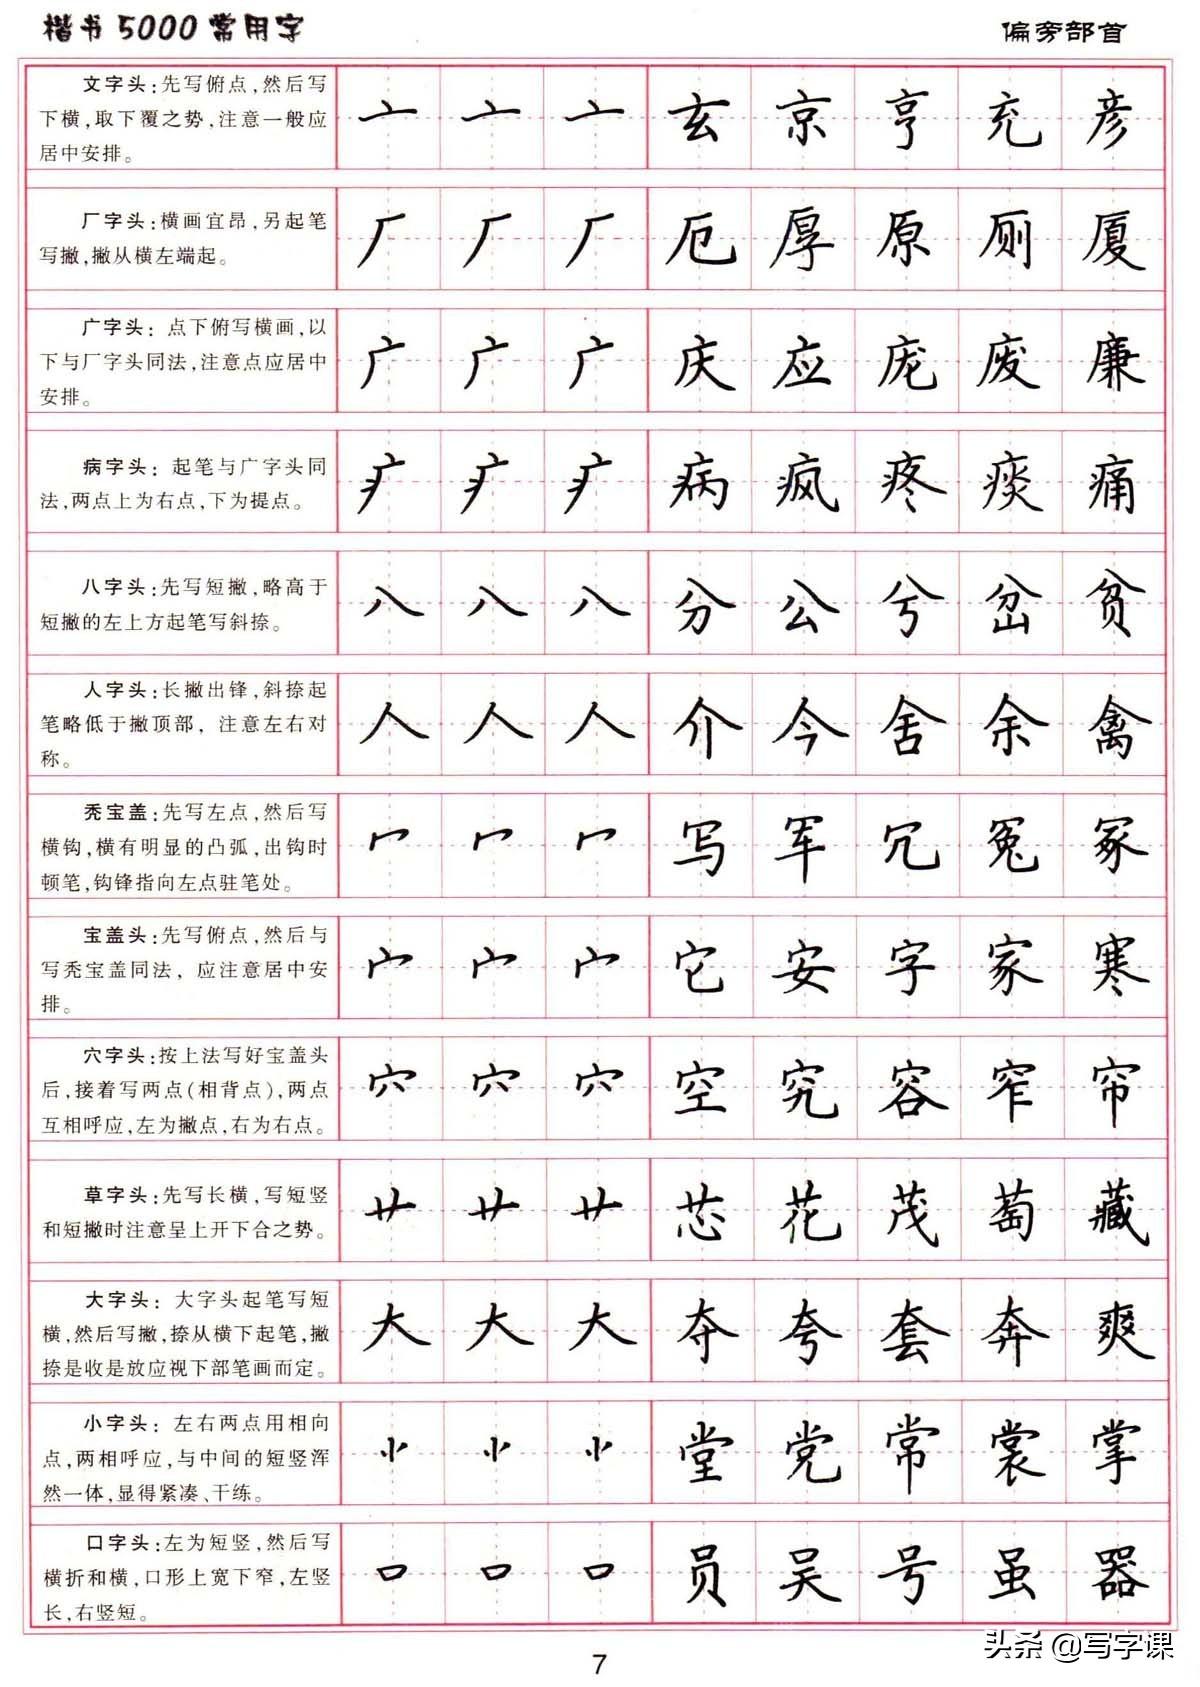 楷书5000常用字
偏旁部首
文字头:先写俯点,然后写
下横,取下覆之势,注意一般应
居中安排。
亠 亠 亠 玄 京 亨 充 彦
厂字头:横画宜昂,另起笔
写撇,撇从横左端起。
厂 厂 厂 厄 厚 原 厕 厦
广字头: 点下俯写横画,以
下与厂字头同法,注意点应居中
安排。
广 广 广 庆 应 庞 废 廉
病字头: 起笔与广字头同
法,两点上为右点,下为提点。
疒 疒 疒 病 疯 疼 痰 痛
八字头:先写短撇,略高于
短撇的左上方起笔写斜捺。
八 八 八 分 公 兮 岔 贫
人字头:长撇出锋,斜捺起
笔略低于撇顶部, 注意左右对
称。
人 人 人 介 今 舍 余 禽
秃宝盖:先写左点,然后写
横钩,横有明显的凸弧,出钩时
顿笔,钩锋指向左点驻笔处。
冖 冖 冖 写 军 冗 冤 冢
宝盖头:先写俯点,然后与
写秃宝盖同法, 应注意居中安
排。
宀 宀 宀 它 安 字 家 寒
穴字头:按上法写好宝盖头
后,接着写两点(相背点),两点
互相呼应,左为撇点,右为右点。
穴 穴 穴 空 究 容 窄 帘
草字头:先写长横,写短竖
和短撇时注意呈上开下合之势。
艹 艹 艹 芯 花 茂 萄 藏
大字头: 大字头起笔写短
横,然后写撇,捺从横下起笔,撇
捺是收是放应视下部笔画而定。
大 大 大 夺 夸 套 奔 爽
小字头: 左右两点用相向
点,两相呼应,与中间的短竖浑
然一体,显得紧凑、干练。
⺌ ⺌ ⺌ 堂 党 常 裳 掌
口字头:左为短竖,然后写
横折和横,口形上宽下窄,左竖
长,右竖短。
口 口 口 员 吴 号 虽 器
7
头条 @写字课